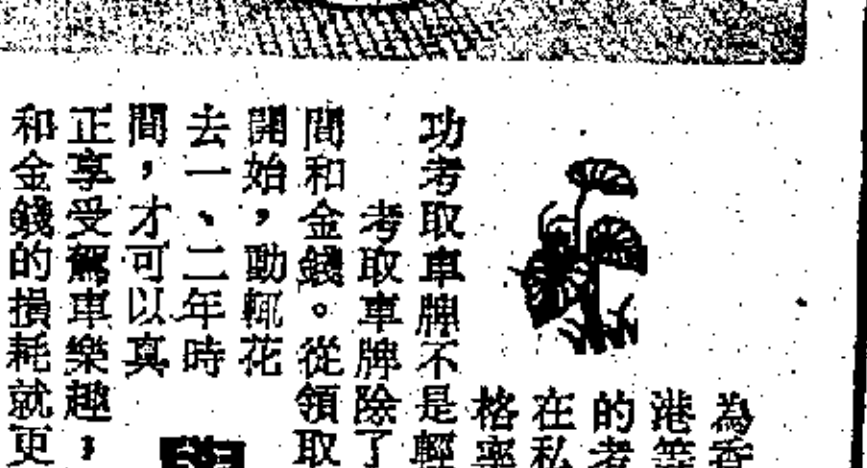 為香
港等
的考
在私
格率
功考取車牌不是輕
考取車牌除了
間和金錢。從領取
開始，動輒花
去一、二年時
間，才可以真
正享受駕車樂趣；
和金錢的損耗就更